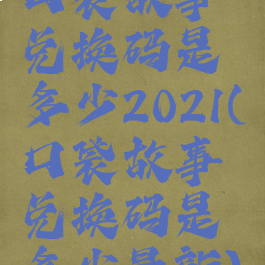 口袋故事
兑换码是
多少2021(
口袋故事
兑换码是
多少最新)